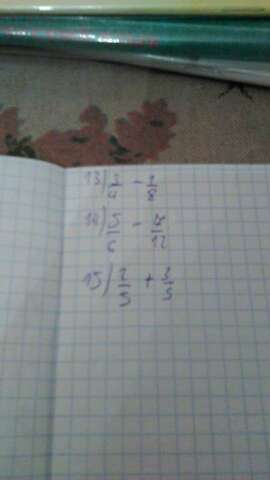 13) 3/4 - 1/8
14) 5/6 - 7/12
15) 2/5 + 3/5